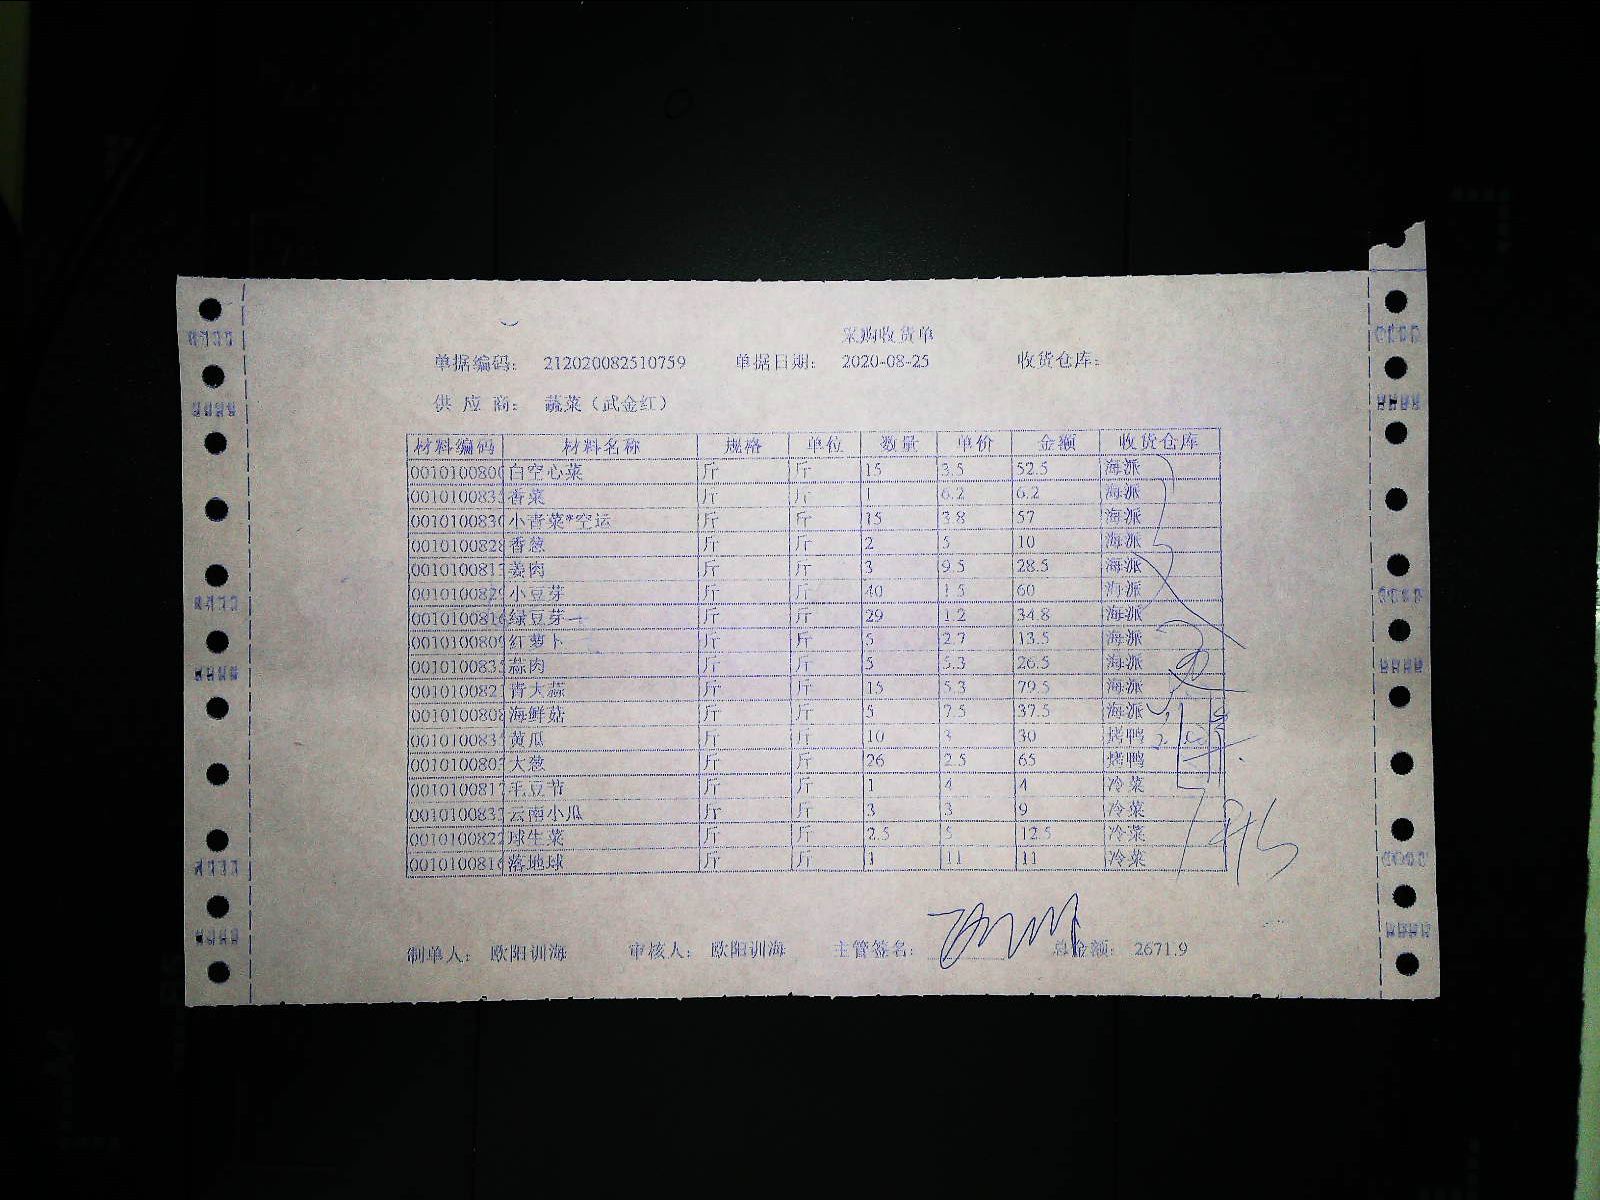 采购收货单
单据编码： 212020082510759 单据日期： 2020-08-25 收货仓库：
供 应 商： 蔬菜（武金红）
材料编码 材料名称 规格 单位 数量 单价 金额 收货仓库
0010100800 白空心菜 斤 斤 15 3.5 52.5 海派
001010083 香菜 斤 斤 1 6.2 6.2 海派
001010083 小青菜*空运 斤 斤 15 3.8 57 海派
0010100828 香葱 斤 斤 2 5 10 海派
001010081 姜肉 斤 斤 3 9.5 28.5 海派
001010082 小豆芽 斤 斤 40 1.5 60 海派
0010100816 绿豆芽一 斤 斤 29 1.2 34.8 海派
0010100809 红萝卜 斤 斤 5 2.7 13.5 海派
001010083 蒜肉 斤 斤 5 5.3 26.5 海派
001010082 青大蒜 斤 斤 15 5.3 79.5 海派
0010100808 海鲜菇 斤 斤 5 7.5 37.5 海派
001010083 黄瓜 斤 斤 10 3 30 烤鸭
001010080 大葱 斤 斤 26 2.5 65 烤鸭
001010081 毛豆节 斤 斤 1 4 4 冷菜
001010083 云南小瓜 斤 斤 3 3 9 冷菜
0010100822 球生菜 斤 斤 2.5 5 12.5 冷菜
0010100816 落地球 斤 斤 1 11 11 冷菜
制单人： 欧阳训海 审核人： 欧阳训海 主管签名： 总金额： 2671.9